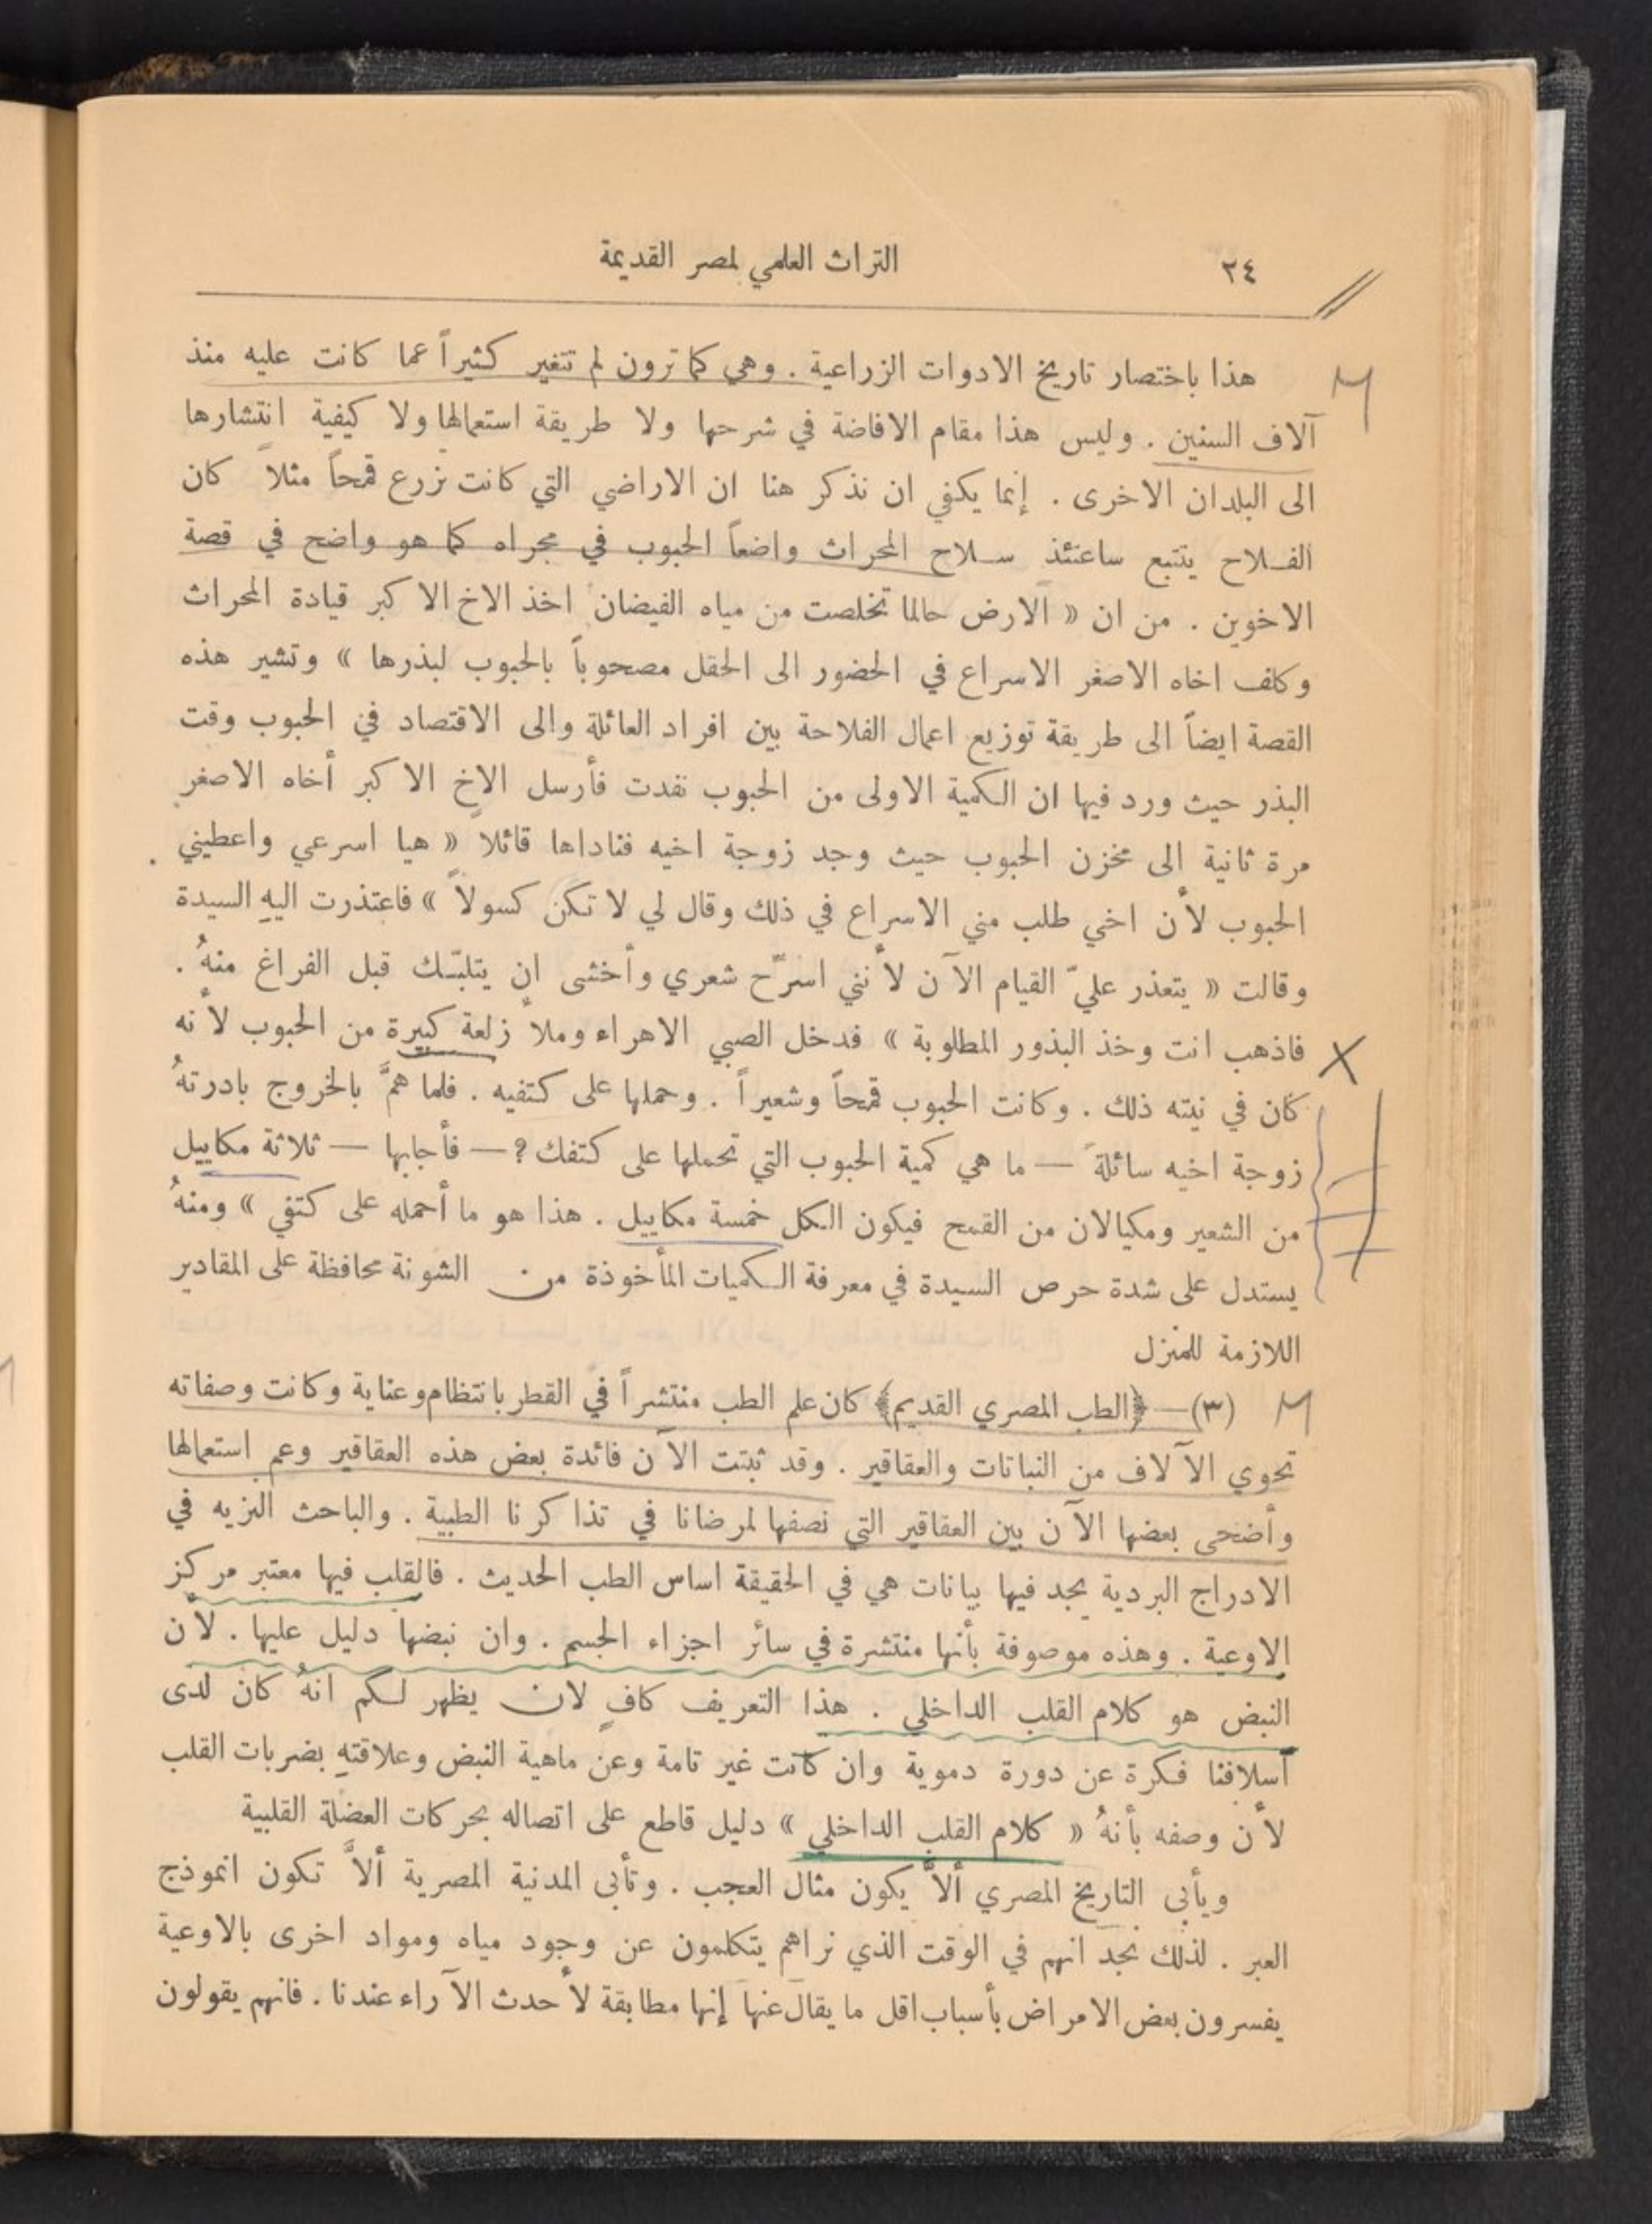 ٢٤ التراث العلمي لمصر القديمة
هذا باختصار تاريخ الادوات الزراعية . وهي كما ترون لم تتغير كثيراً عما كانت عليه منذ
آلاف السنين . وليس هذا مقام الافاضة في شرحها ولا طريقة استعمالها ولا كيفية انتشارها
الى البلدان الاخرى . إنما يكفي ان نذكر هنا ان الاراضي التي كانت تزرع قمحاً مثلاً كان
الفـلاح يتتبع ساعتئذ سـلاح المحراث واضعاً الحبوب في مجراه كما هو واضح في قصة
الاخوين . من ان « الارض حالما تخلصت من مياه الفيضان اخذ الاخ الاكبر قيادة المحراث
وكلف اخاه الاصغر الاسراع في الحضور الى الحقل مصحوباً بالحبوب لبذرها » وتشير هذه
القصة ايضاً الى طريقة توزيع اعمال الفلاحة بين افراد العائلة والى الاقتصاد في الحبوب وقت
البذر حيث ورد فيها ان الكمية الاولى من الحبوب نفدت فأرسل الاخ الاكبر أخاه الاصغر
مرة ثانية الى مخزن الحبوب حيث وجد زوجة اخيه فناداها قائلا « هيا اسرعي واعطيني
الحبوب لأن اخي طلب مني الاسراع في ذلك وقال لي لا تكن كسولاً » فاعتذرت اليهِ السيدة
وقالت « يتعذر عليّ القيام الآن لأنني اسرّح شعري وأخشى ان يتلبّك قبل الفراغ منهُ .
فاذهب انت وخذ البذور المطلوبة » فدخل الصبي الاهراء وملأ زلعة كبيرة من الحبوب لأنه
كان في نيته ذلك . وكانت الحبوب قمحاً وشعيراً . وحملها على كتفيه . فلما همَّ بالخروج بادرتهُ
زوجة اخيه سائلةً — ما هي كمية الحبوب التي تحملها على كتفك ؟ — فأجابها — ثلاثة مكاييل
من الشعير ومكيالان من القمح فيكون الكل خمسة مكاييل . هذا هو ما أحمله على كتفي » ومنهُ
يستدل على شدة حرص السيدة في معرفة الكميات المأخوذة من الشونة محافظة على المقادير
اللازمة للمنزل
(٣) — ﴿الطب المصري القديم﴾ كان علم الطب منتشراً في القطر بانتظام وعناية وكانت وصفاته
تحوي الآلاف من النباتات والعقاقير . وقد ثبتت الآن فائدة بعض هذه العقاقير وعم استعمالها
وأضحى بعضها الآن بين العقاقير التي نصفها لمرضانا في تذاكرنا الطبية . والباحث النزيه في
الادراج البردية يجد فيها بيانات هي في الحقيقة اساس الطب الحديث . فالقلب فيها معتبر مركز
الاوعية . وهذه موصوفة بأنها منتشرة في سائر اجزاء الجسم . وان نبضها دليل عليها . لأن
النبض هو كلام القلب الداخلي . هذا التعريف كافٍ لان يظهر لكم انهُ كان لدى
أسلافنا فكرة عن دورة دموية وان كانت غير تامة وعن ماهية النبض وعلاقتهِ بضربات القلب
لأن وصفه بأنهُ « كلام القلب الداخلي » دليل قاطع على اتصاله بحركات العضلة القلبية
ويأبى التاريخ المصري ألاَّ يكون مثال العجب . وتأبى المدنية المصرية ألاَّ تكون انموذج
العبر . لذلك نجد انهم في الوقت الذي نراهم يتكلمون عن وجود مياه ومواد اخرى بالاوعية
يفسرون بعض الامراض بأسباب اقل ما يقال عنها إنها مطابقة لأحدث الآراء عندنا . فانهم يقولون